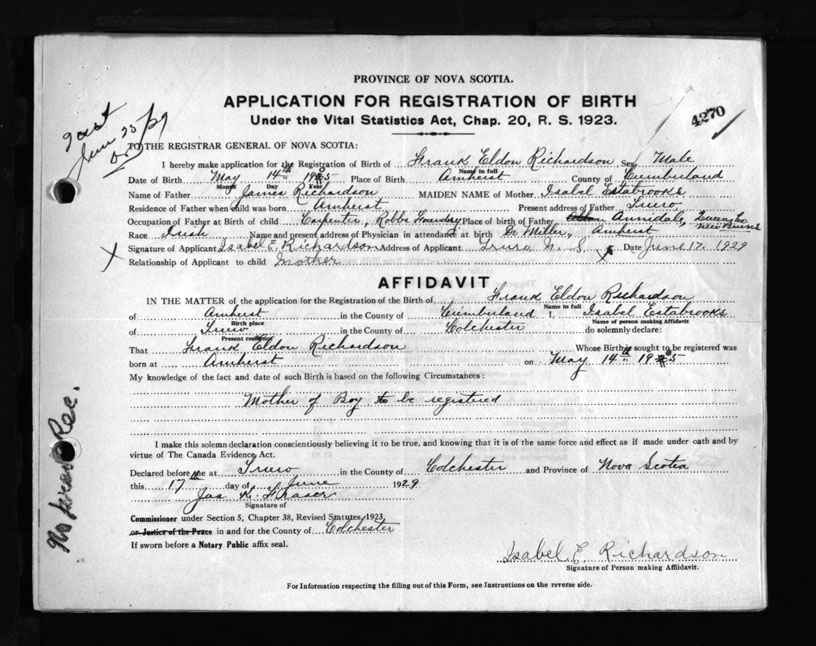 PROVINCE OF NOVA SCOTIA.
APPLICATION FOR REGISTRATION OF BIRTH
Under the Vital Statistics Act, Chap. 20, R. S. 1923.
4270
TO THE REGISTRAR GENERAL OF NOVA SCOTIA:
I hereby make application for the Registration of Birth of Frank Eldon Richardson Sex Male
Name in full
Date of Birth May 14th 1905 Place of Birth Amherst County of Cumberland
Month Day Year
Name of Father James Richardson MAIDEN NAME of Mother Isabel Estabrooks
Residence of Father when child was born Amherst Present address of Father Truro
Occupation of Father at Birth of child Carpenter, Robbs Foundry Place of birth of Father Annidale, New Bruns
Race Irish Name and present address of Physician in attendance at birth Miller, Amherst
X Signature of Applicant Isabel E. Richardson Address of Applicant Truro N. S. Date June 17. 1929
Relationship of Applicant to child Mother
AFFIDAVIT
IN THE MATTER of the application for the Registration of the Birth of Frank Eldon Richardson
Name in full
of Amherst in the County of Cumberland I, Isabel Estabrooks
Birth place Name of person making Affidavit
of Truro in the County of Colchester do solemnly declare:
Present residence
That Frank Eldon Richardson Whose Birth is sought to be registered was
born at Amherst on May 14th 1905
My knowledge of the fact and date of such Birth is based on the following Circumstances:
Mother of Boy to be registired
I make this solemn declaration conscientiously believing it to be true, and knowing that it is of the same force and effect as if made under oath and by
virtue of The Canada Evidence Act.
Declared before me at Truro in the County of Colchester and Province of Nova Scotia
this 17th day of June 1929
Jas K. Fraser
Signature of
Commissioner under Section 5, Chapter 38, Revised Statutes, 1923,
or Justice of the Peace in and for the County of Colchester
If sworn before a Notary Public affix seal.
Isabel E. Richardson
Signature of Person making Affidavit.
For Information respecting the filling out of this Form, see Instructions on the reverse side.